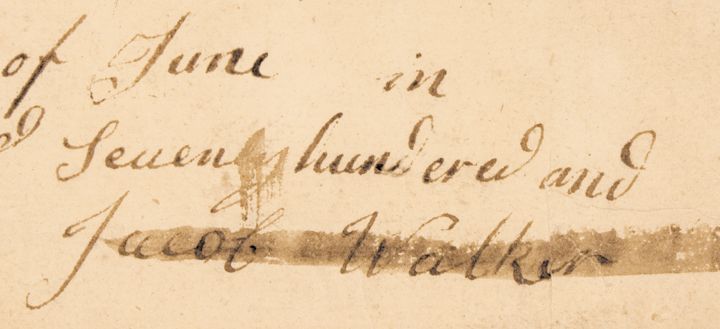 of June in
d Seven hundered and
Jacob Walker